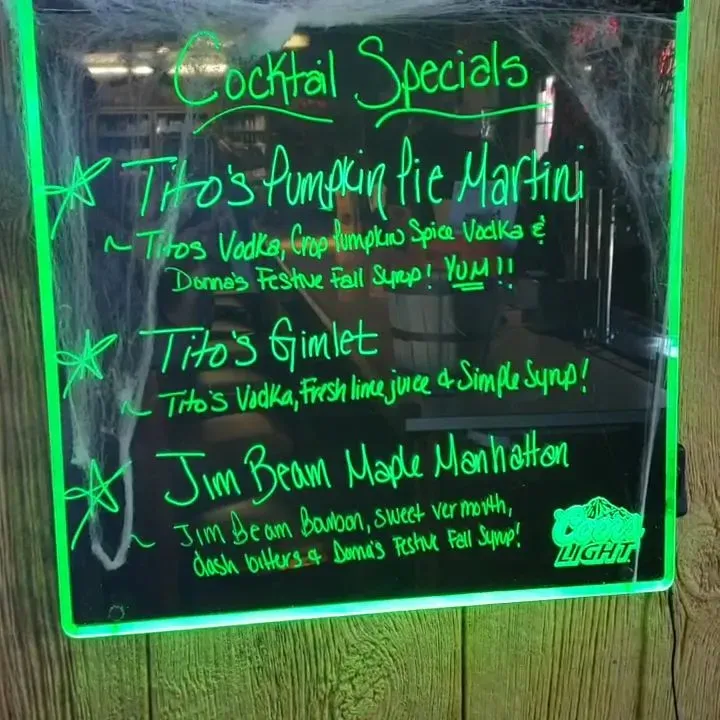 Cocktail Specials
Tito's Pumpkin Pie Martini
~ Titos Vodka, Crop Pumpkin Spice Vodka &
Donna's Festive Fall Syrup! YUM!!
Tito's Gimlet
~ Tito's Vodka, Fresh lime juice & Simple Syrup!
Jim Beam Maple Manhattan
~ Jim Beam Bourbon, sweet vermouth,
dash bitters & Donna's Festive Fall Syrup!
Coors
LIGHT